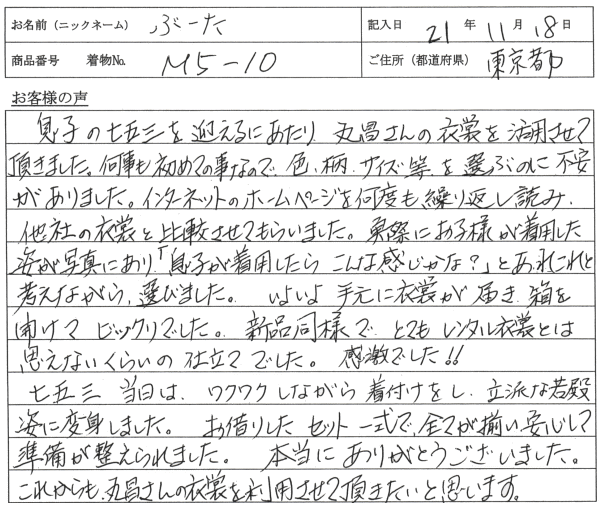 お名前（ニックネーム） ぶーた 記入日 21年11月18日
商品番号 着物No. M5-10 ご住所（都道府県） 東京都
お客様の声
息子の七五三を迎えるにあたり、丸昌さんの衣裳を活用させて
頂きました。何事も初めての事なので、色、柄、サイズ等を選ぶのに不安
がありました。インターネットのホームページを何度も繰り返し読み、
他社の衣裳と比較させてもらいました。実際にお子様が着用した
姿が写真にあり、「息子が着用したらこんな感じかな？」とあれこれと
考えながら、選びました。 いよいよ手元に衣裳が届き、箱を
開けてビックリでした。 新品同様で とてもレンタル衣裳とは
思えないくらいの仕立てでした。 感激でした!!
七五三当日は、ワクワクしながら着付けをし、立派な若殿
姿に変身しました。 お借りしたセット一式で、全てが揃い、安心して
準備が整えられました。 本当にありがとうございました。
これからも、丸昌さんの衣裳を利用させて頂きたいと思います。